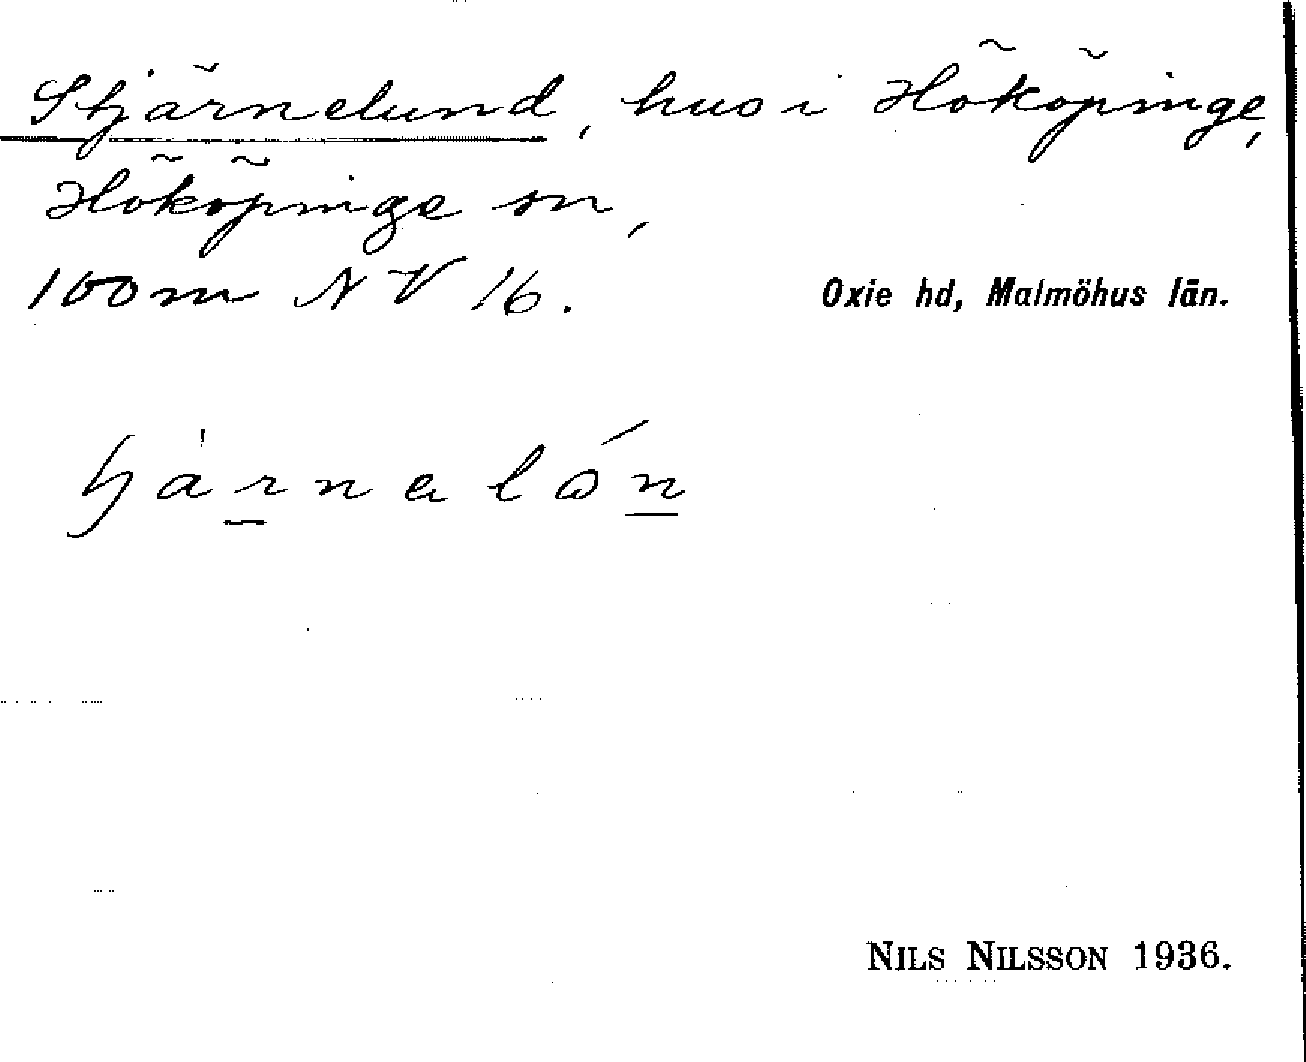 Stjärnelund, hus i Hököpinge,
Hököpinge sn,
100 m NV 16.
Oxie hd, Malmöhus län.
NILS NILSSON 1936.